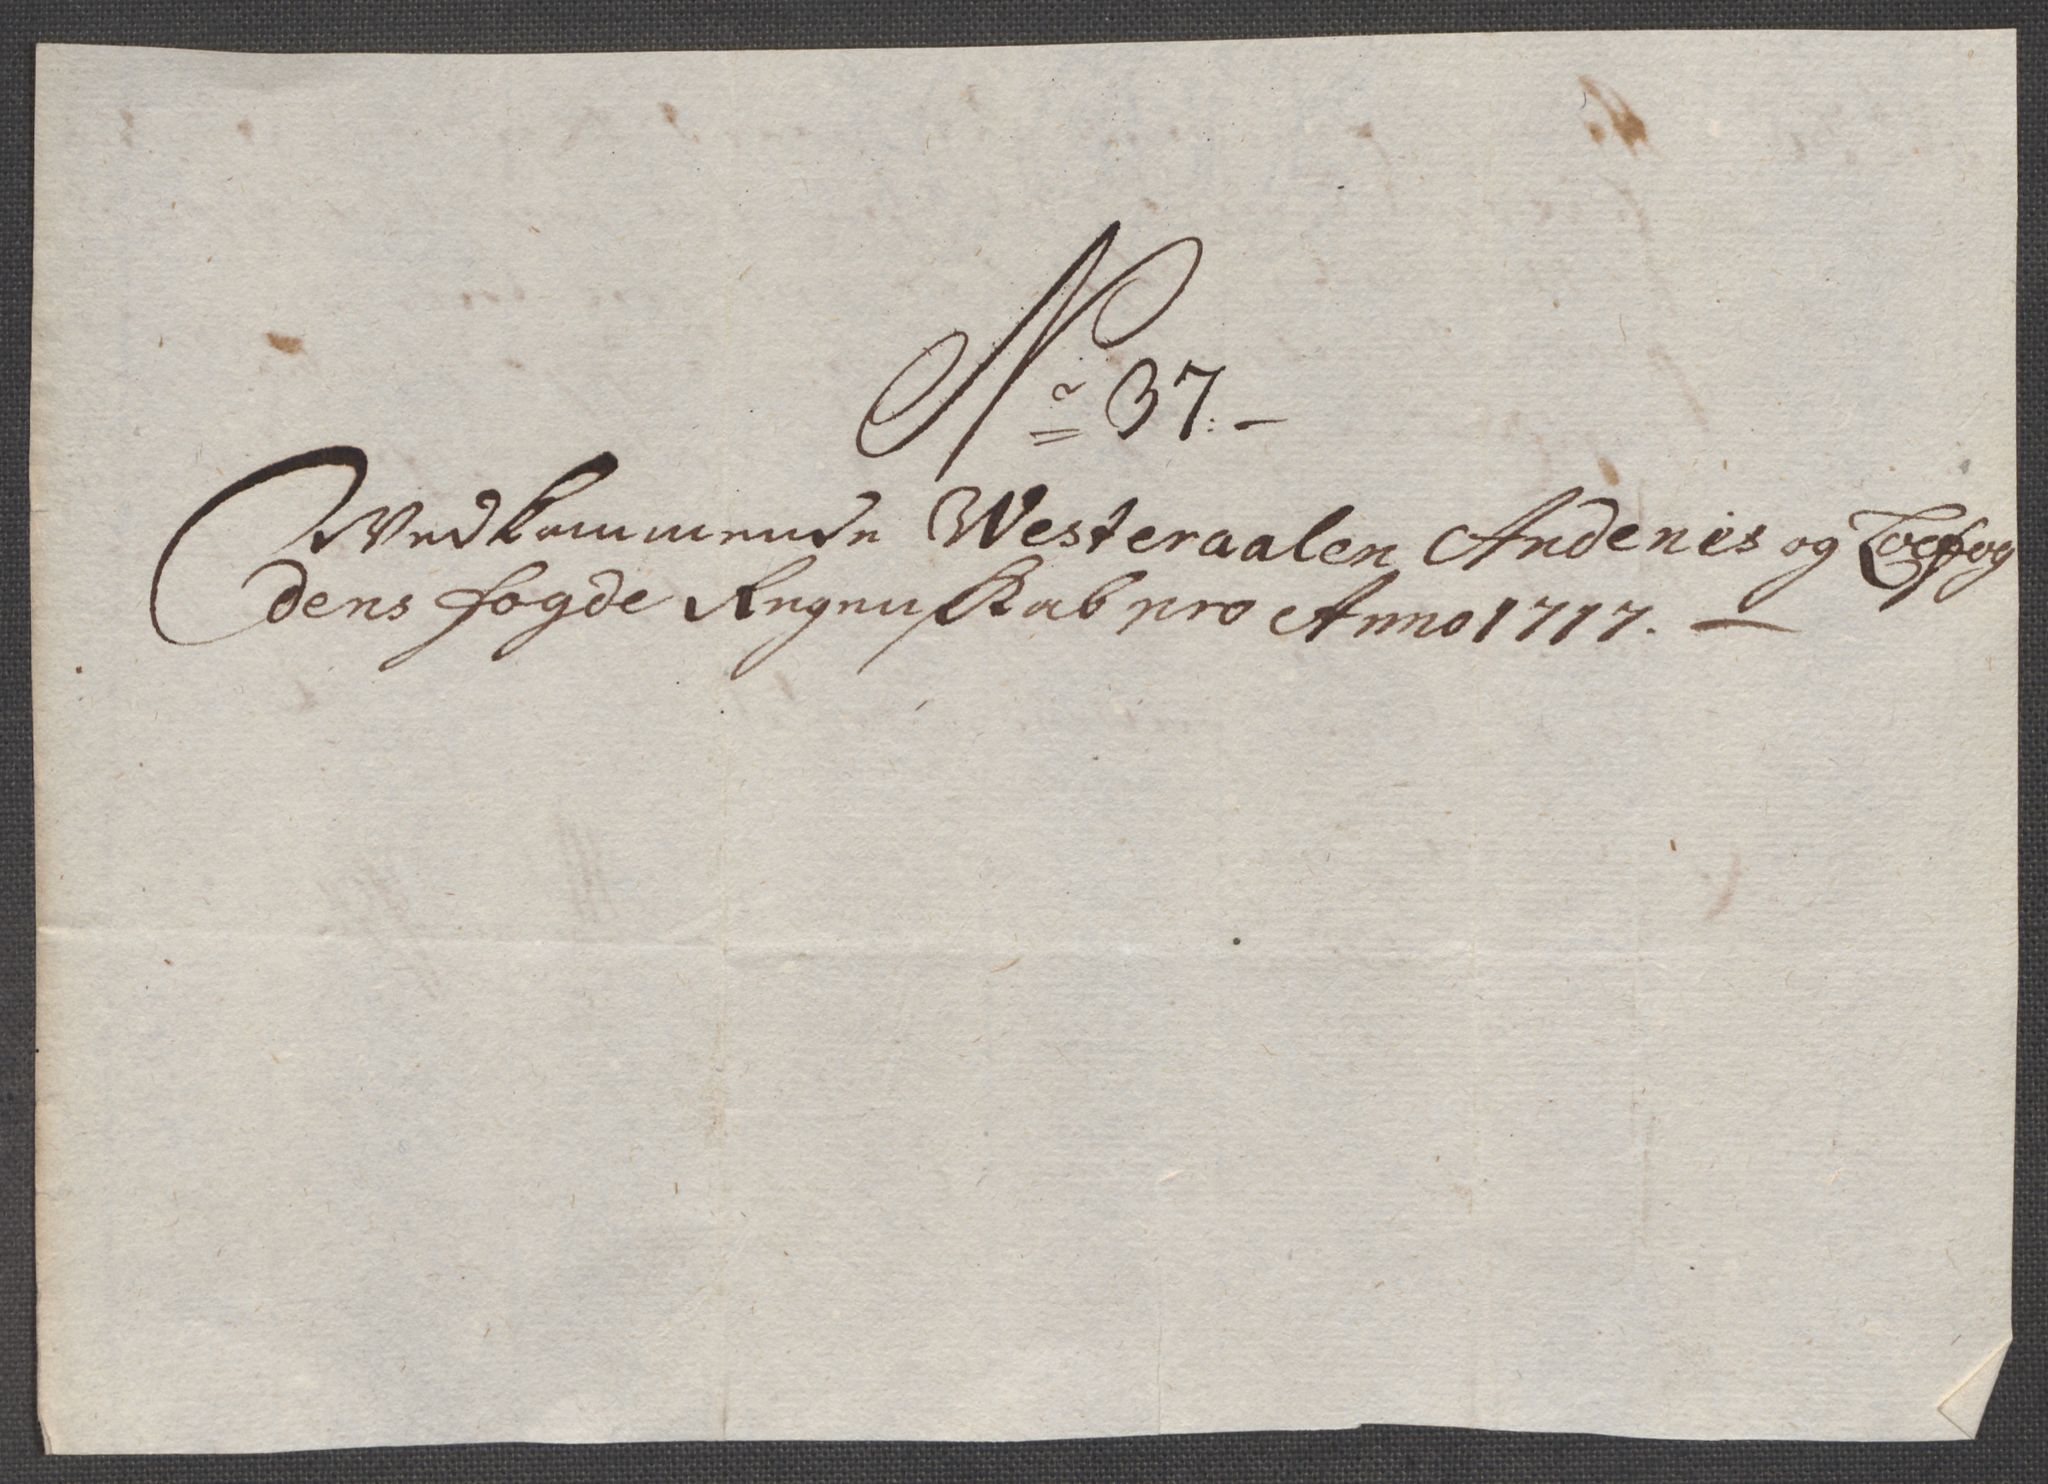 No 37. –
Vedkommende Westeraalen Andenis og Loefog
dens fogde Regnuskab pro Anno 1717. —